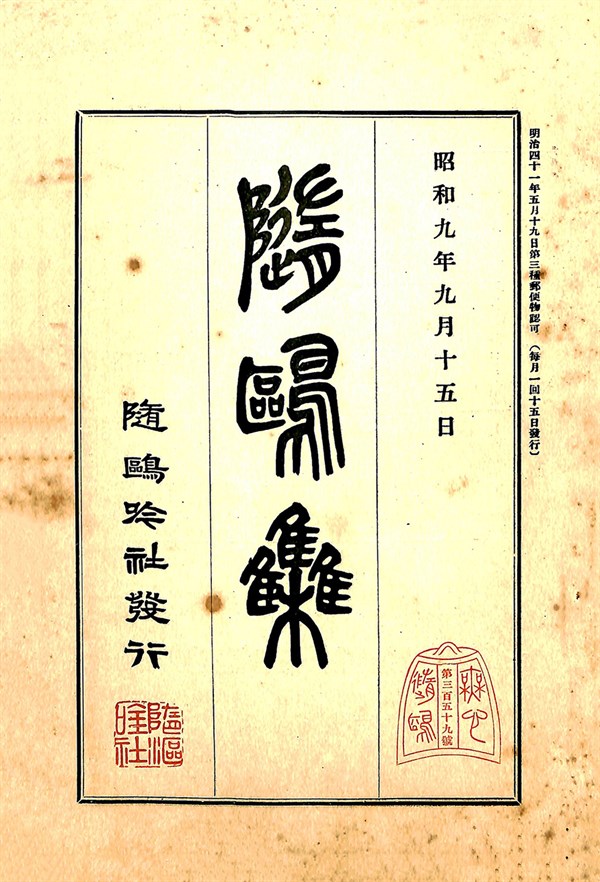 明治四十一年五月十九日第三種郵便物認可 （每月一回十五日發行）
昭和九年九月十五日
無心
第三百五十九號
隨鷗
隨鷗集
隨鷗吟社發行
隨鷗吟社